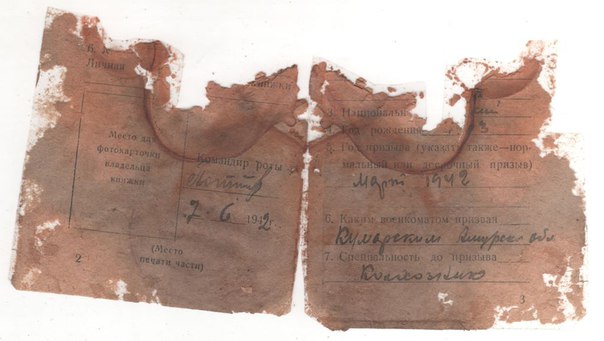 Личная
книжки
Место для
фотокарточки
владельца
книжки
Командир роты
7-6 1942
(Место
печати части)
2
3. Националь
4. Год рождения 3
5. Год призыва (указать также—нор-
мальный или досрочный призыв)
Март 1942
6. Каким военкоматом призван
Кумарским Амурск обл
7. Специальность до призыва
Колхозник
3